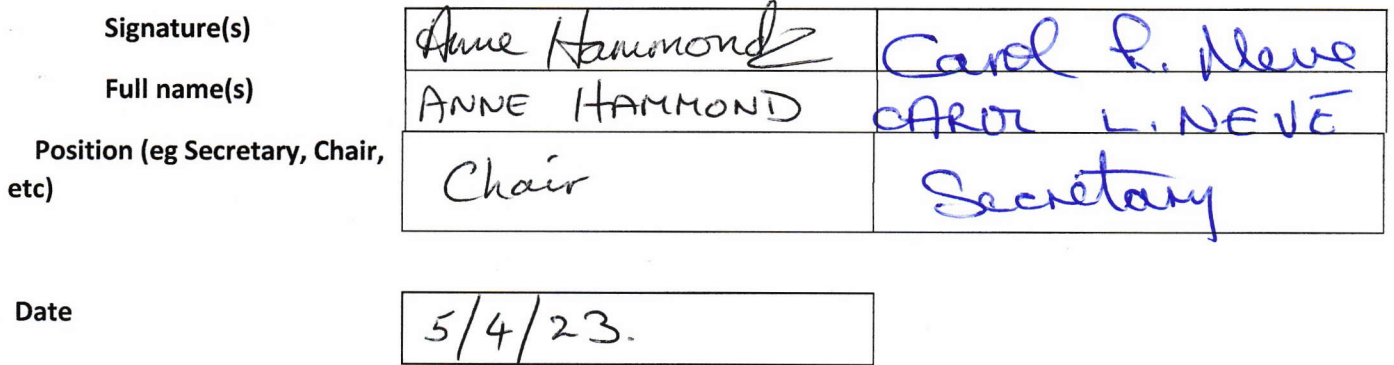 Signature(s) Anne Hammond Carol L. Neve
Full name(s) ANNE HAMMOND CAROL L. NEVE
Position (eg Secretary, Chair, etc) Chair Secretary
Date 5/4/23.